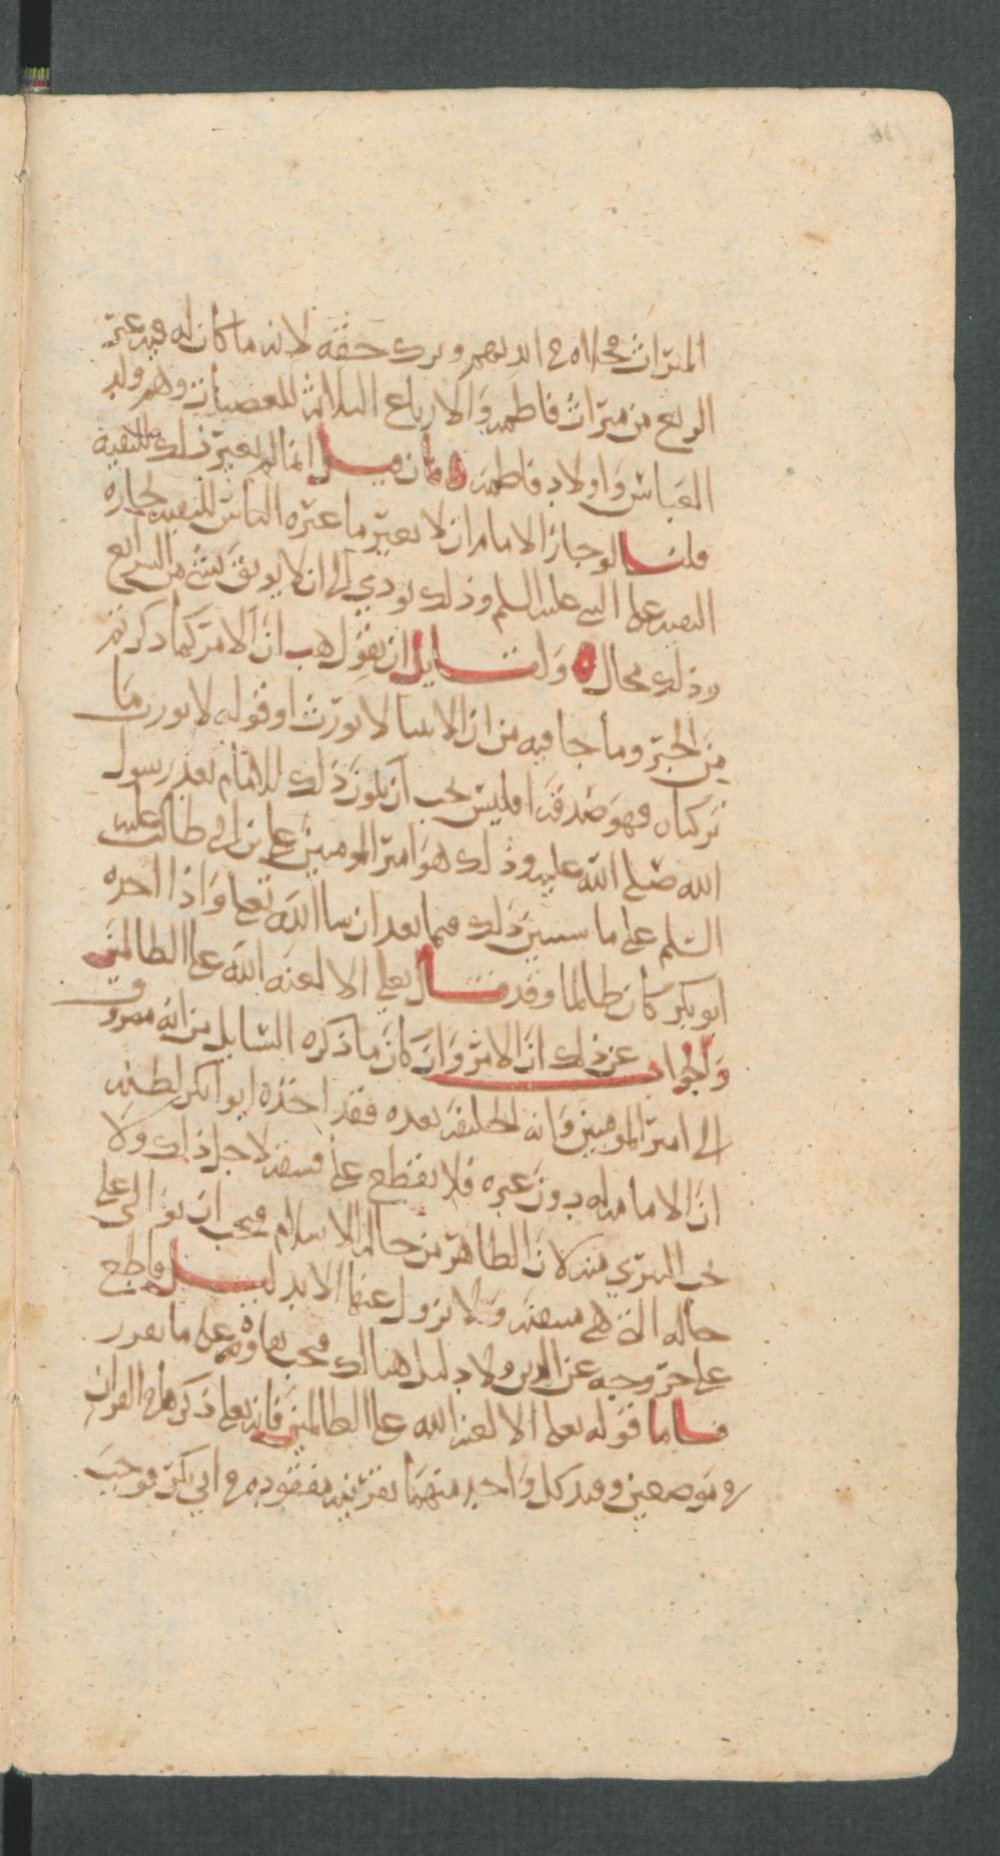 الميراث الديهم وترك حقه لانه ما كان له فيه غير
الربع من ميراث فاطمه والارباع الثلاثة للعصبات وهم ولد
العباس واولاد فاطمه فان قيل انما لم يغير ذلك للتقية
قلنا لو جاز الامام ان لا يغير ما غيره الناس للتقيه لجازت
التقيه على النبي عليه السلم وذلك يودي الى ان لا يوثق بشي من الشرايع
وذلك محال ولقايل ان يقول هب ان الامر كما ذكرتم
من الخبر وما جا فيه من ان الانبيا لا تورث او قوله لا نورث ما
تركناه فهو صدقه افليس يجب ان يكون ذلك للامام بعد رسول
الله صلى الله عليه وذلك هو امير المومنين علي بن ابي طالب عليه
السلم على ما سنبين ذلك فيما بعد ان شا الله تعلى واذا اخذه
ابو بكر كان ظالما وقد قال تعلى الا لعنه الله على الظالمين
والجواب عن ذلك ان الامر وان كان ما ذكره السايل من انه مصروف
الى امير المومنين وانه الخليفة بعده فقد اخذه ابو بكر لظنه
ان الامامه له دون غيره فلا نقطع على فسقه لاجل ذلك ولا
يجب التبري منه لان الظاهر من حاله الاسلام فيجب ان نوالى على
حاله التي هي متيقنه ولا نزول عنها الا بدليل قاطع
على خروجه عن الدين ولا دليل هنالك فيجب بقاوه على ما تقرر
فاما قوله تعلى الا لعنه الله على الظالمين فانه تعلى ذكرها في القران
في موضعين وفيه كل واحد منهما قرينه مفقوده في ابي بكر فوجب